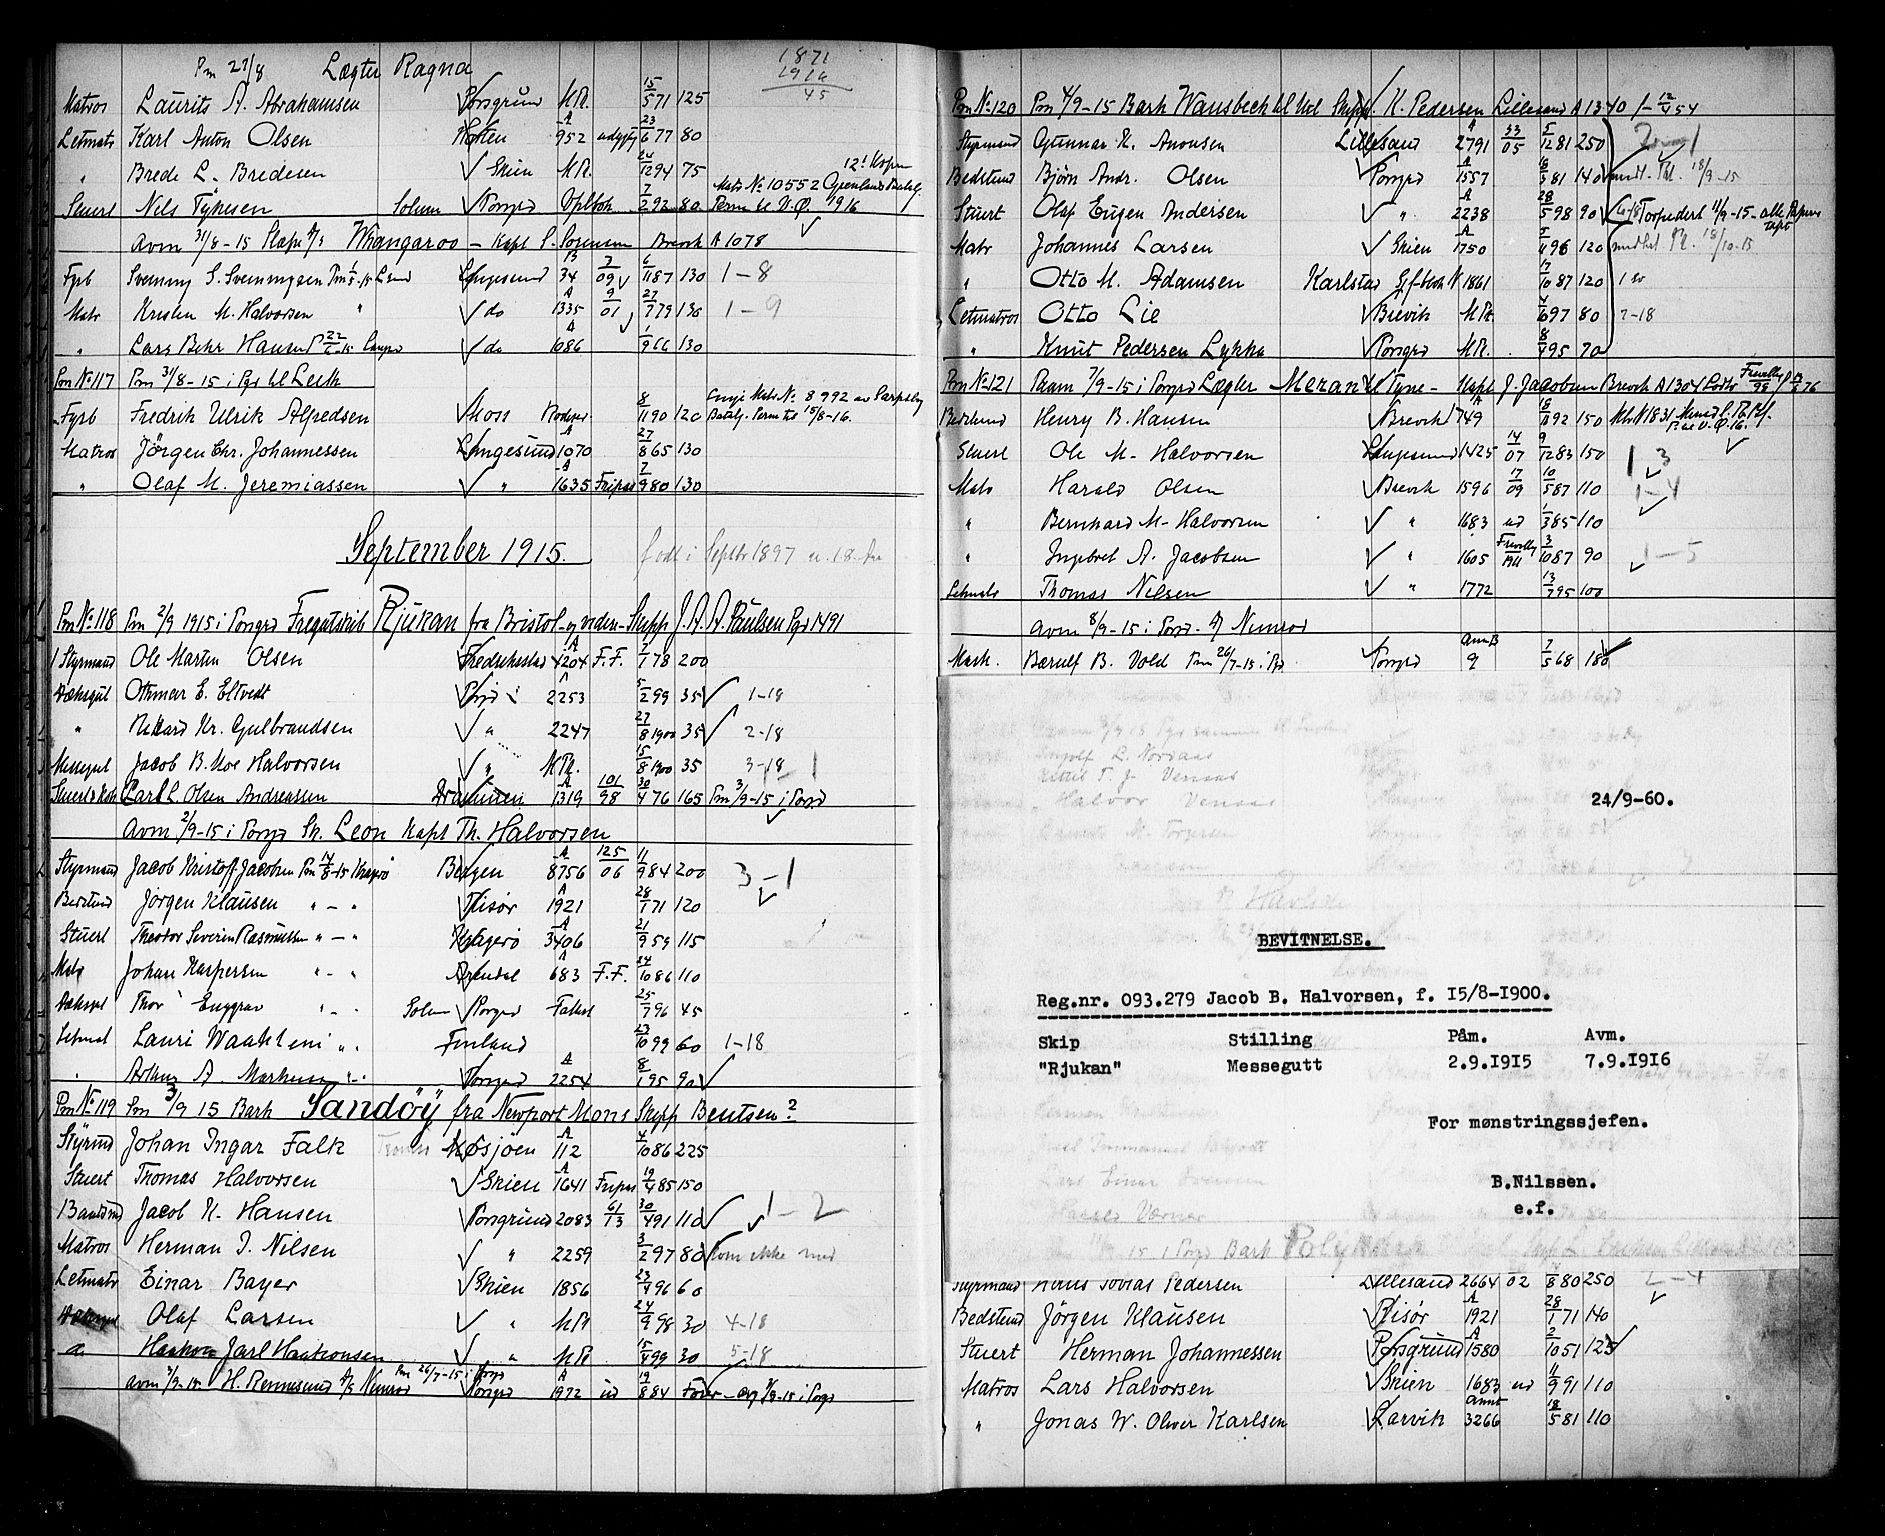 Pm 27/8 Lægter Ragna
1871
1916
45
Matros Laurits A. Abrahamsen Porsgrund M.R. 15/5 71 125
Letmatr Karl Anton Olsen Horten A 952 23/6 77 80
" Brede L. Bredesen Skien M.R. 24/12 94 75
Stuert Nils Tykesen Solum Porsgrd 7/2 92 80 Mstr No 10552 1916
avm 31/8-15 Whangaroo - Kapt S. Sørensen Brevik A 1078
Fyrb Svenning S. Svenningsen Langesund B 34 3/09 6/11 87 130 1-8
Matr Kristen M. Halvorsen " do A 1335 9/01 27/7 79 130 1-9
" Lars Behr Hansen do A 1086 1/9 66 130
Pm No 117 Pm 31/8-15 i Pgr til Leith
Fyrb Fredrik Ulrik Alfredsen Moss 8/11 90 120
Matros Jörgen Chr. Johannessen Langesund A 1070 27/8 65 130
" Olaf M. Jeremiassen " A 1635 Fripas 7/9 80 130
September 1915. født i Septbr 1897 = 18 år
Pm No 118 Pm 2/9 1915 i Porsgrd Fregatskib Rjukan fra Bristol - og videre - Skipp J. A. A. Paulsen Pgr 1491
Styrmand Ole Martin Olsen Fredrikstad A 4204 F.F. 7/1 78 200
Dæksgut Othmar E. Eltvedt Porsgrd A 2253 5/2 99 35 1-18
" Rikard Kr. Gulbrandsen " 2247 27/8 1900 35 2-18
Messegut Jacob B. Moe Halvorsen " M.R. 15/8 1900 35 3-18
Stuert & Kok Carl L. Olsen Andreassen Drammen A 1319 101/98 30/4 76 165 Pm 3/9-15 i Porsgrd
Avm 2/9-15 i Porsgrd Sk. Leon Kapt Th. Halvorsen
Styrmand Jacob Kristoff. Jacobsen Pm 14/8-15 Kragerø Bergen A 8756 125/06 11/9 84 200 3-1
Bedstmd Jørgen Klausen " - " Risør A 1921 28/1 71 120
Stuert Theodor Severin Rasmussen " - " Kragerø A 3406 21/9 59 115
Matr Johan Kaspersen " - " Arendal A 683 F.F. 24/10 86 110
Dæksgut Thor Enggrav " - " Solum Porsgrd 25/7 96 45
Letmat Lauri Waahteni " " Finland 23/10 99 60 1-18
" A. Markussen " - " Porsgrd A 2254 8/1 95 90
Pm No 119 Pm 3/9 15 Bark Sandöÿ fra Newport Mons Skipp Bentsen?
Styrmd Johan Ingar Falk Mosjöen A 112 4/10 86 225
Stuert Thomas Halvorsen Skien A 1641 Fripas 19/4 85 150
Baadsmd Jacob K. Hansen Porsgrund 2083 61/13 30/4 91 110 1-2
Matros Herman I. Nilsen " 2259 3/2 97 80 kom ikke med
Letmatr Einar Bayer Skien 1856 23/4 96 60
Dæksgut Olaf Larsen " M.R. 24/9 98 30 4-18
" Haakon Jarl Haakonsen " M.R. 15/4 99 30 5-18
avm 3/9-15 H. Rasmussen A/S Nimrod Pm 26/7-15 i Porsgrd Porsgrd A 1972 ud 19/8 84
Pm No 120 Pm 4/9-15 Bark Wansbeck til Hul Skipp. K. Pedersen Lillesand A 1340 f- 12/4 54
Styrmand Gunnar K. Aronsen Lillesand A 2791 33/05 5/12 81 250
Bedstmd Bjørn Andr. Olsen Porsgrd A 1557 6/3 81 140 18/9-15
Stuert Olaf Eugen Andersen " 2238 28/5 98 90 Torpedert 11/9-15 - alle Papirer tapt
Matr Johannes Larsen Skien A 1750 5/4 96 120 18/10-15
" Otto M. Adamsen Karlstad 1861 17/10 87 120
Letmatros Otto Lie Brevik M.R. 4/6 97 80 2-18
" Knut Pedersen Lykke Porsgrd M.R. 8/4 95 70
Pm No 121 Paam 7/9-15 i Porsgrd Lægter Meran til Tyne - Kapt J. Jacobsen Brevik A 1304
Bedstmd Henry B. Hansen Brevik A 749 18/11 92 150
Stuert Ole M. Halvorsen Langesund 1425 14/07 9/12 83 150 1-3
Matr Harald Olsen Brevik 1596 17/09 10/5 87 110 1-4
" Bernhard M. Halvorsen " 1683 ud 1/3 85 110
" Ingebret A. Jacobsen " 1605 3/10 87 90 1-5
Letmatr Thomas Nilsen " 1772 13/7 95 100
avm 8/9-15 i Porsgr. A/S Nimrod
Mask. Berulf B. Vold Pm 26/7-15 i Pgr Porsgrd 9 7/5 68 180
24/9-60.
BEVITNELSE.
Reg.nr. 093.279 Jacob B. Halvorsen, f. I5/8-I900.
Skip Stilling Påm. Avm.
"Rjukan" Messegutt 2.9.I9I5 7.9.I9I6
For mønstringssjefen.
B.Nilssen.
e.f.
15 i Porsgr Bark
Styrmand Hans Tobias Pedersen Lillesand 2664 02 /8 80 250 2-4
Bedstmd Jörgen Klausen Risør A 1921 28/1 71 140
Stuert Herman Johannessen Porsgrund A 1580 2/10 51 125
Matros Lars Halvorsen Skien 1683 ud 11/9 91 110
" Jonas W. Oliver Karlsen Larvik 3266 18/5 81 110